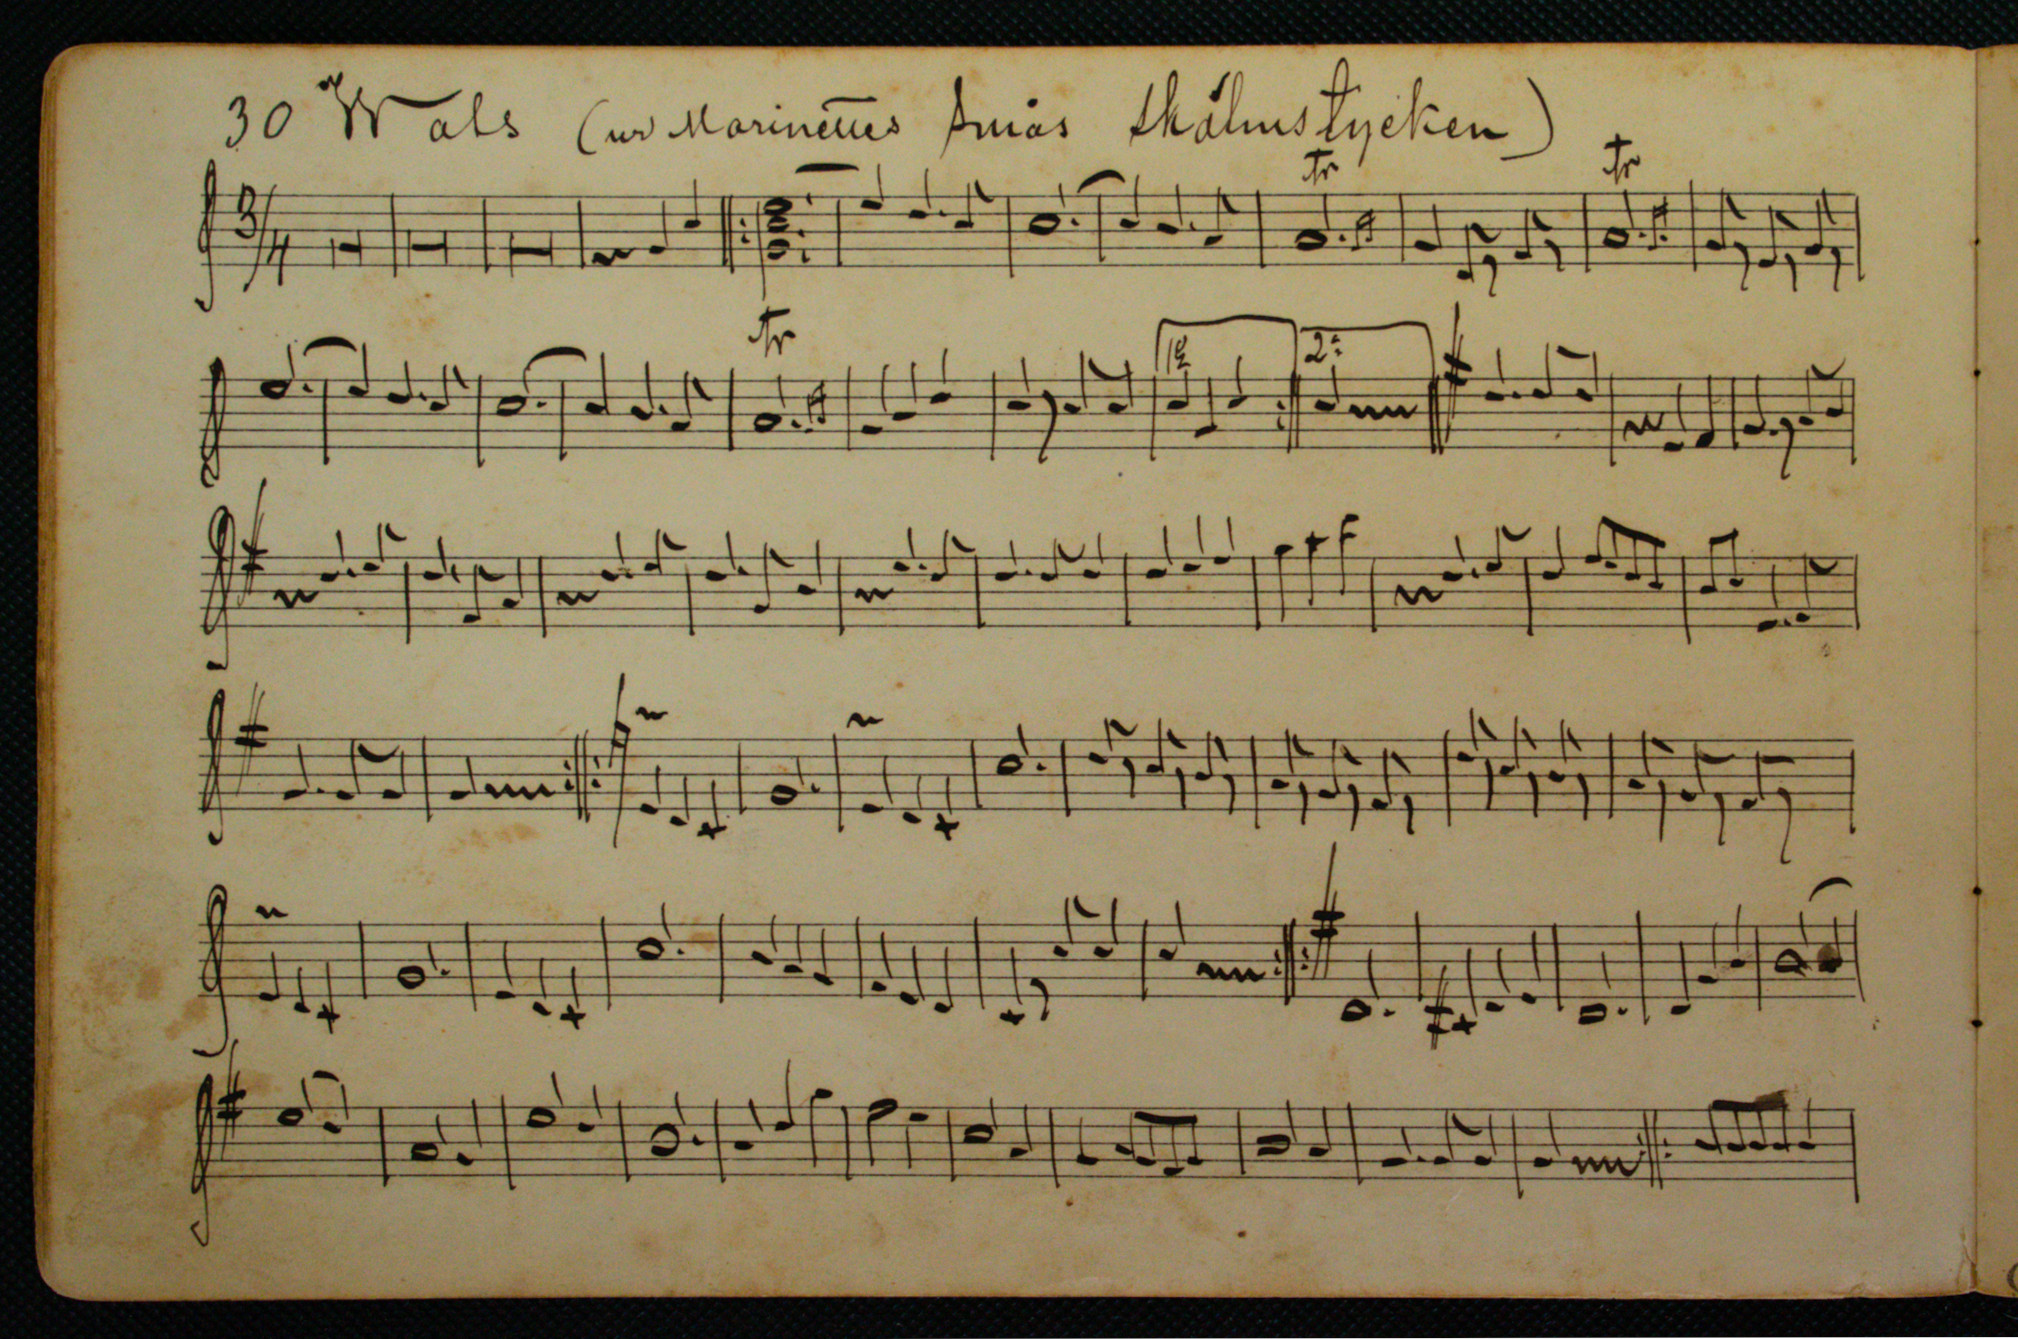 30 Wals (ur Marinettes Smås Skälmstycken)
3/4
tr tr
tr
1a 2a